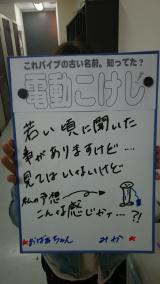 これバイブの古い名前。知ってた?
電動こけし
若い頃に聞いた
事がありますけど…
見てはいないけど
私の予想
こんな感じだっ…?!
★おばあちゃん みか★